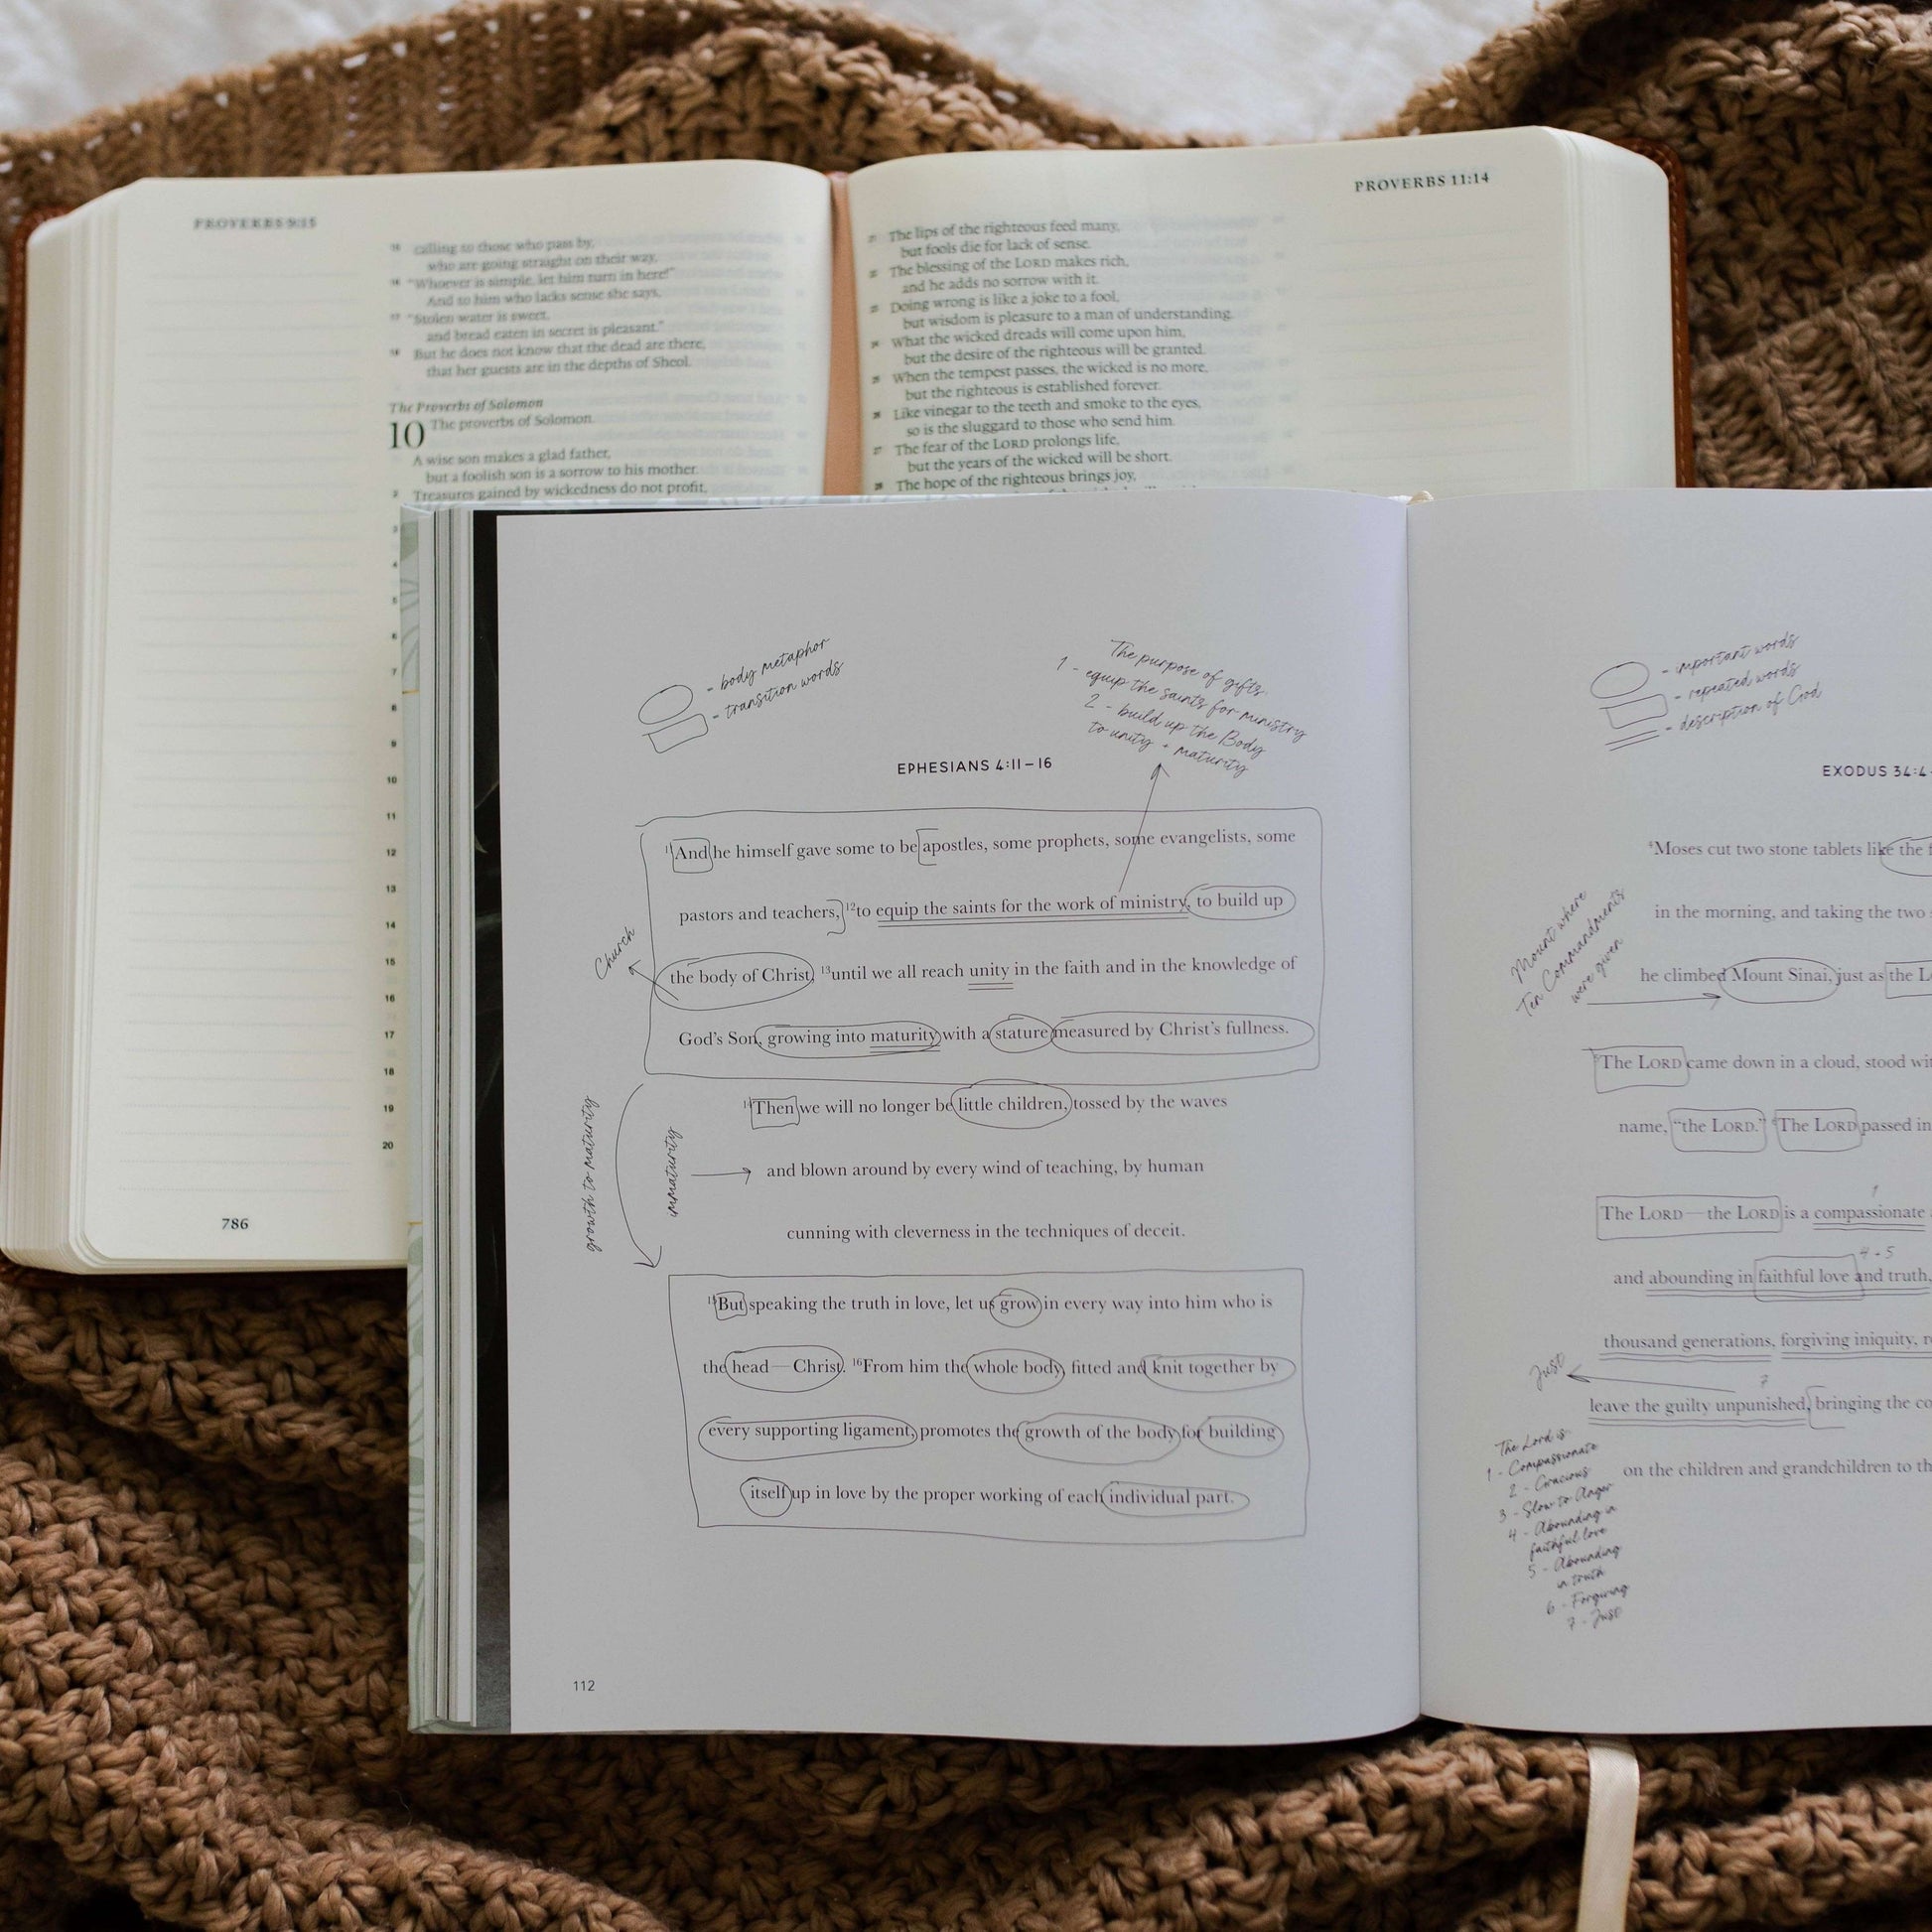 PROVERBS 9:15
calling to those who pass by,
who are going straight on their way,
16 "Whoever is simple, let him turn in here!"
And to him who lacks sense she says,
17 "Stolen water is sweet,
and bread eaten in secret is pleasant."
18 But he does not know that the dead are there,
that her guests are in the depths of Sheol.
The Proverbs of Solomon
10 The proverbs of Solomon.
A wise son makes a glad father,
but a foolish son is a sorrow to his mother.
2 Treasures gained by wickedness do not profit,
3
4
5
6
7
8
9
10
11
12
13
14
15
16
17
18
19
20
786
PROVERBS 11:14
21 The lips of the righteous feed many,
but fools die for lack of sense.
22 The blessing of the LORD makes rich,
and he adds no sorrow with it.
23 Doing wrong is like a joke to a fool,
but wisdom is pleasure to a man of understanding.
24 What the wicked dreads will come upon him,
but the desire of the righteous will be granted.
25 When the tempest passes, the wicked is no more,
but the righteous is established forever.
26 Like vinegar to the teeth and smoke to the eyes,
so is the sluggard to those who send him.
27 The fear of the LORD prolongs life,
but the years of the wicked will be short.
28 The hope of the righteous brings joy,
- body metaphor
- transition words
The purpose of gifts:
1 - equip the saints for ministry
2 - build up the Body
to unity + maturity
EPHESIANS 4:11–16
And he himself gave some to be apostles, some prophets, some evangelists, some
pastors and teachers, 12to equip the saints for the work of ministry, to build up
the body of Christ, 13until we all reach unity in the faith and in the knowledge of
God's Son, growing into maturity with a stature measured by Christ's fullness.
14Then we will no longer be little children, tossed by the waves
and blown around by every wind of teaching, by human
cunning with cleverness in the techniques of deceit.
15But speaking the truth in love, let us grow in every way into him who is
the head—Christ. 16From him the whole body, fitted and knit together by
every supporting ligament, promotes the growth of the body for building
itself up in love by the proper working of each individual part.
Church
growth to maturity
immaturity
112
- important words
- repeated words
- description of God
EXODUS 34:4-
4Moses cut two stone tablets like the f
in the morning, and taking the two
he climbed Mount Sinai, just as the L
The LORD came down in a cloud, stood wi
name, "the LORD." The LORD passed in
The LORD—the LORD is a compassionate
and abounding in faithful love and truth,
thousand generations, forgiving iniquity, r
leave the guilty unpunished, bringing the co
on the children and grandchildren to th
Mount where
Ten Commandments
were given
1
4 + 5
7
Just
The Lord is:
1 - Compassionate
2 - Gracious
3 - Slow to Anger
4 - Abounding in
faithful love
5 - Abounding
in truth
6 - Forgiving
7 - Just